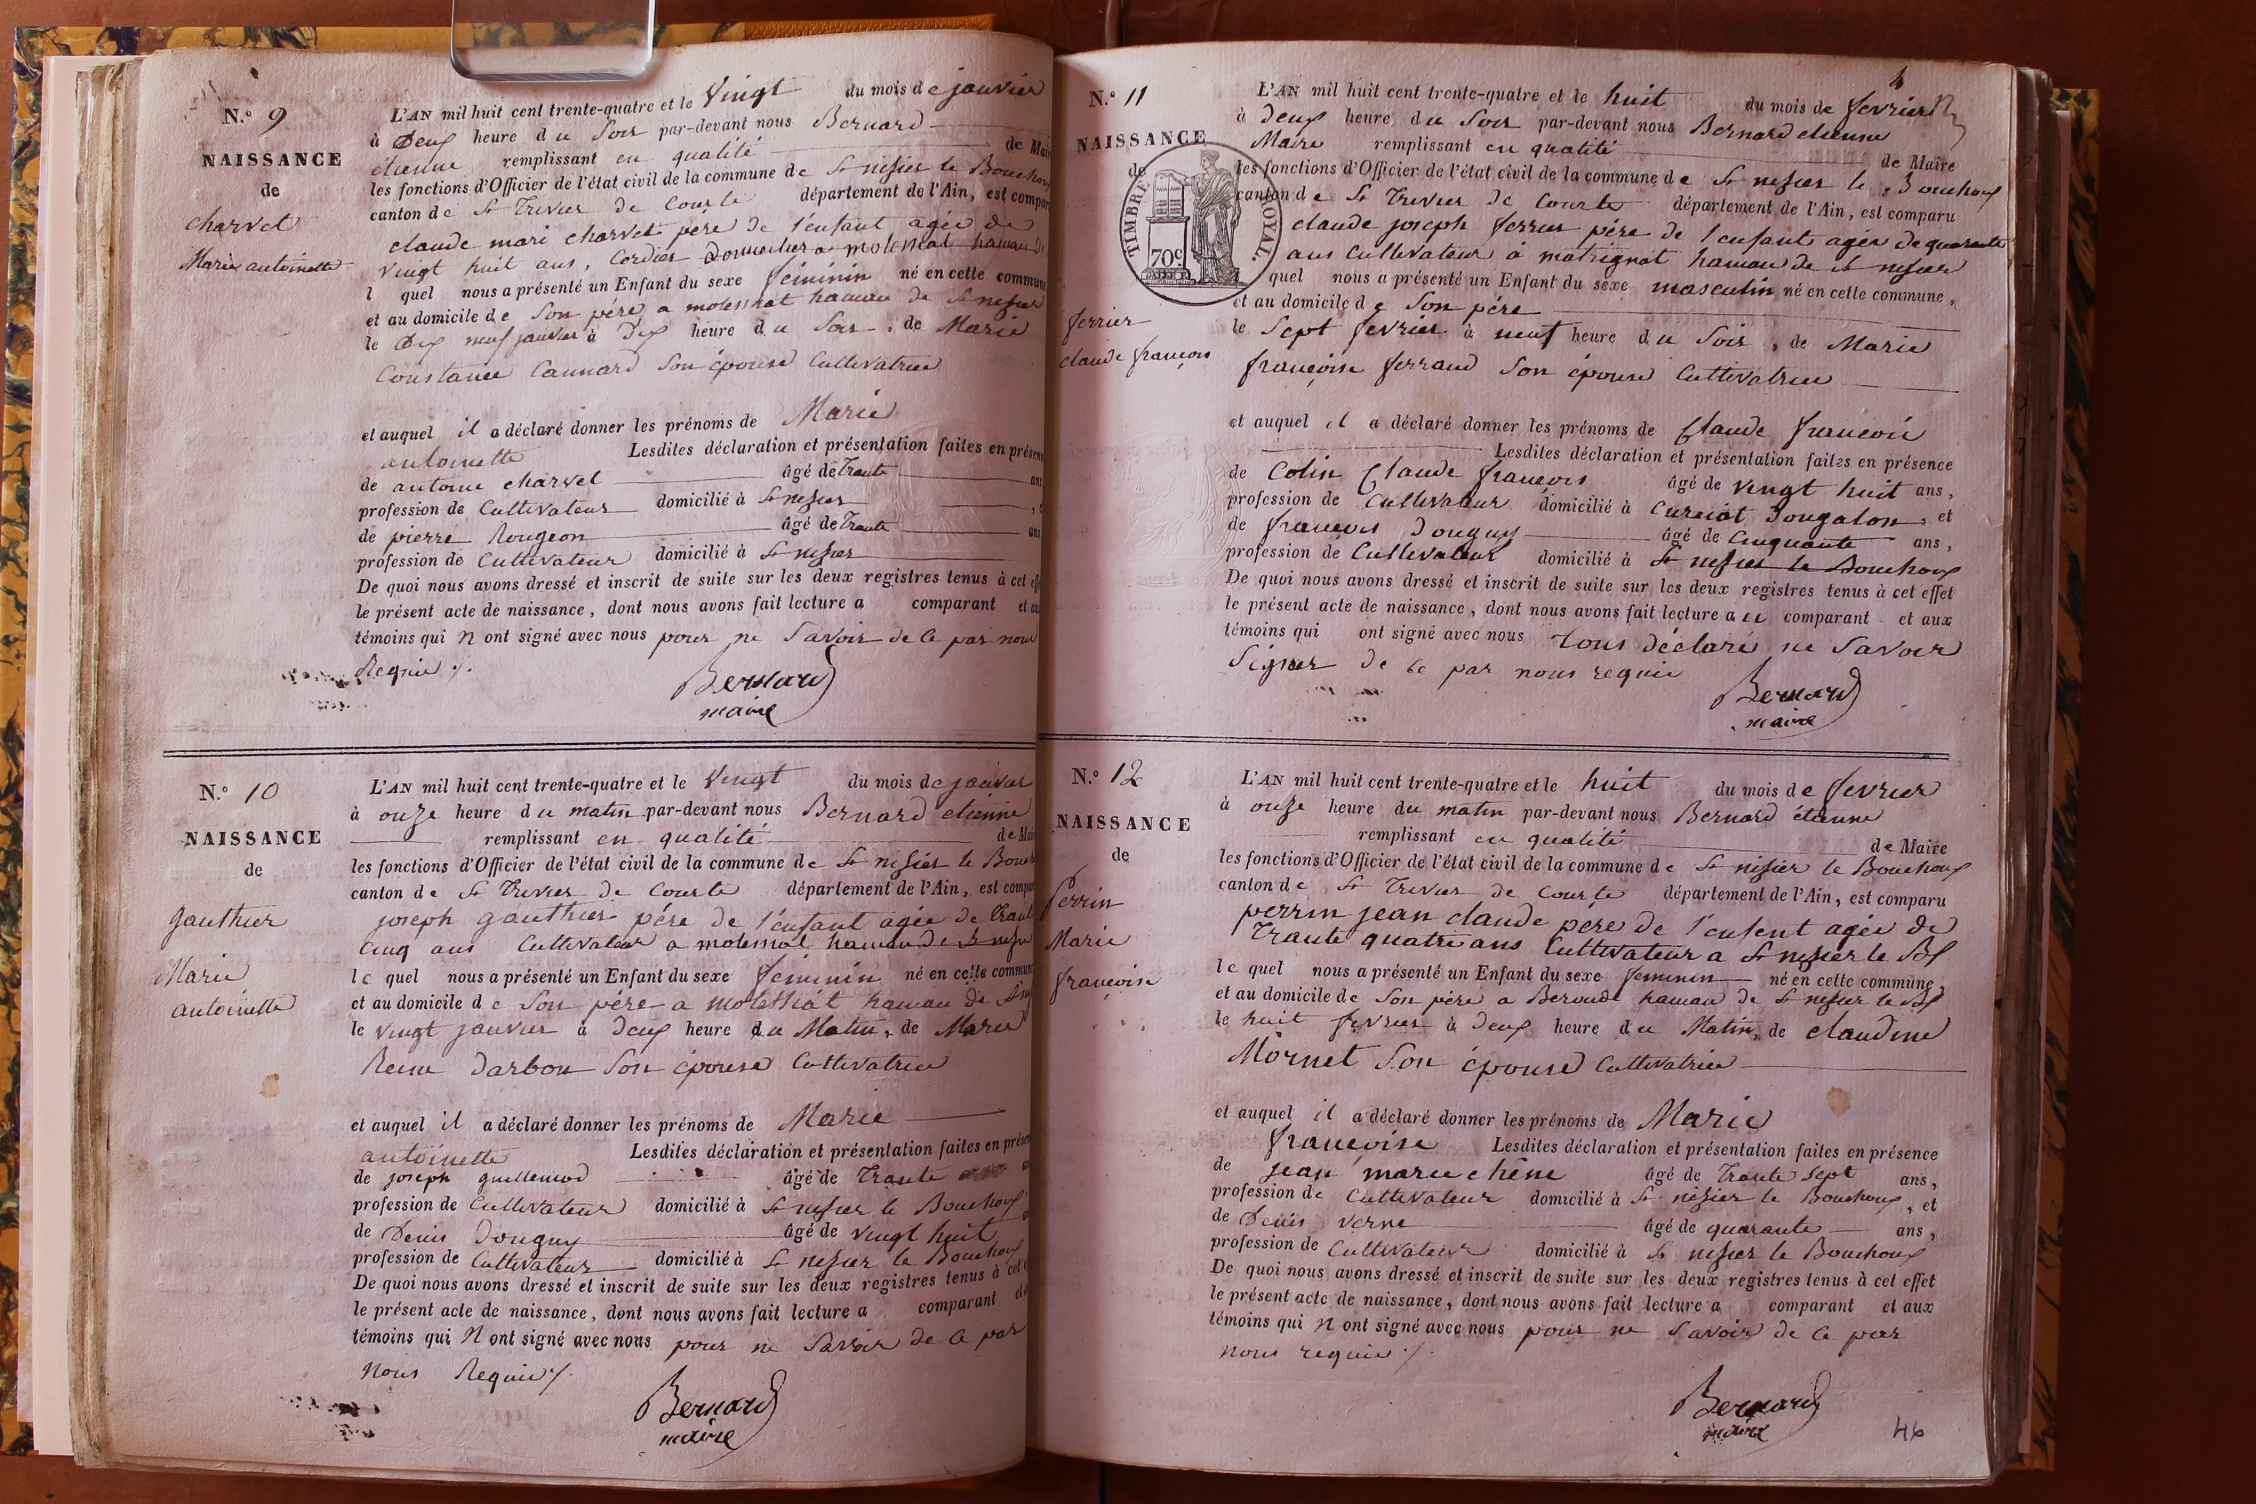 N.º 9
NAISSANCE
de
charvet
Marie antoinette
L'AN mil huit cent trente-quatre et le Vingt du mois de janvier
à Deux heure du Soir par-devant nous Bernard
étienne remplissant en qualité de Mai
les fonctions d'Officier de l'état civil de la commune de St nisier le Bouchoux
canton de St Trivier de Courte département de l'Ain, est compar
claude mari charvet père de l'enfant agée de
vingt huit ans, Cordier Domicilier a molessiat hamau De
l quel nous a présenté un Enfant du sexe féminin né en cette commune
et au domicile de Son père a molessiat hamau de St nisier
le Dix neuf janvier à Dix heure du Soir, de Marie
Constance Cannard Son épouse Cultivatrice
et auquel il a déclaré donner les prénoms de Marie
antoinette Lesdites déclaration et présentation faites en présen
de antoine charvet âgé de Trante ans
profession de Cultivateur domicilié à St nisier
de pierre Rougeon âgé de Trante ans
profession de Cultivateur domicilié à St nisier
De quoi nous avons dressé et inscrit de suite sur les deux registres tenus à cet eff
le présent acte de naissance, dont nous avons fait lecture a comparant et au
témoins qui n ont signé avec nous pour ne Savoir de Ce par nous
Requie ./.
Bernard
maire
N.º 10
NAISSANCE
de
gauthier
Marie
antoinette
L'AN mil huit cent trente-quatre et le Vingt du mois de janvier
à onze heure du matin par-devant nous Bernard etienne
remplissant en qualité de Mai
les fonctions d'Officier de l'état civil de la commune de St nisier le Bouch
canton de St Trivier de Courte département de l'Ain, est compar
joseph gauthier père de l'enfant agée de Trante
Cinq ans Cultivateur a molessiat hamau de St nisier
le quel nous a présenté un Enfant du sexe féminin né en cette commune
et au domicile de Son père a molessiat hamau de St
le vingt janvier à deux heure du Matin, de Marie
Reine Darbon Son épouse Cultivatrice
et auquel il a déclaré donner les prénoms de Marie
antoinette Lesdites déclaration et présentation faites en présen
de joseph guillemod âgé de Trante
profession de Cultivateur domicilié à St nisier le Bouchoux
de Denis Donguy âgé de vingt huit
profession de Cultivateur domicilié à St nisier le Bouchoux
De quoi nous avons dressé et inscrit de suite sur les deux registres tenus à cet
le présent acte de naissance, dont nous avons fait lecture a comparant et
témoins qui n ont signé avec nous pour ne Savoir de Ce par
nous Requie ./.
Bernard
maire
N.º 11
NAISSANCE
de
TIMBRE ROYAL.
70c.
ferrier
claude françois
L'AN mil huit cent trente-quatre et le huit du mois de fevrier
à deux heure du Soir par-devant nous Bernard etienne
Maire remplissant en qualité de Maire
les fonctions d'Officier de l'état civil de la commune de St nisier le Bouchoux
canton de St Trivier de Courte département de l'Ain, est comparu
claude joseph ferrier père de l'enfant agée de quarante
ans Cultivateur à matrignat hamau de St nisier
quel nous a présenté un Enfant du sexe masculin né en cette commune,
et au domicile de Son père
le Sept fevrier à neuf heure du Soir, de Marie
françoise ferrand Son épouse Cultivatrice
et auquel il a déclaré donner les prénoms de Claude françois
Lesdites déclaration et présentation faites en présence
de Colin Claude françois âgé de vingt huit ans,
profession de Cultivateur domicilié à Curciat Dongalon, et
de françois Donguy âgé de Cinquante ans,
profession de Cultivateur domicilié à St nisier le Bouchoux
De quoi nous avons dressé et inscrit de suite sur les deux registres tenus à cet effet
le présent acte de naissance, dont nous avons fait lecture au comparant et aux
témoins qui ont signé avec nous tous déclaré ne Savoir
Signer de Ce par nous requie
Bernard
maire
N.º 12
NAISSANCE
de
Perrin
Marie
françoise
L'AN mil huit cent trente-quatre et le huit du mois de fevrier
à onze heure du matin par-devant nous Bernard étienne
remplissant en qualité de Maire
les fonctions d'Officier de l'état civil de la commune de St nisier le Bouchoux
canton de St Trivier de Courte département de l'Ain, est comparu
perrin jean claude père de l'enfent agée de
Trante quatre ans Cultivateur a St nisier le Bx
le quel nous a présenté un Enfant du sexe feminin né en cette commune,
et au domicile de Son père a Beroude hamau de St nisier le Bx
le huit fevrier à deux heure du Matin, de claudine
Mornet Son épouse Cultivatrice
et auquel il a déclaré donner les prénoms de Marie
françoise Lesdites déclaration et présentation faites en présence
de jean marie chêne âgé de Trante Sept ans,
profession de Cultivateur domicilié à St nisier le Bouchoux, et
de Denis verne âgé de quarante ans,
profession de Cultivateur domicilié à St nisier le Bouchoux
De quoi nous avons dressé et inscrit de suite sur les deux registres tenus à cet effet
le présent acte de naissance, dont nous avons fait lecture a comparant et aux
témoins qui n ont signé avec nous pour ne Savoir de Ce par
nous requie ./.
Bernard
maire
46